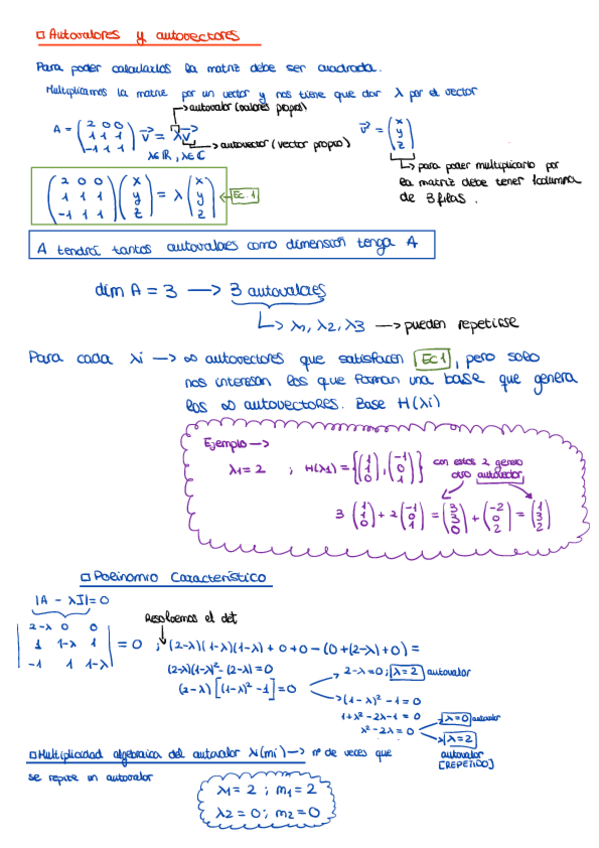 □ Autovalores y autovectores
Para poder calcularlos la matriz debe ser cuadrada.
Multiplicamos la matriz por un vector y nos tiene que dar λ por el vector
→ autovalor (valores propios)
A = (2 0 0 / 1 1 1 / -1 1 1) v⃗ = λv⃗ → autovector (vector propio)
λ∈ℝ, λ∈ℂ
v⃗ = (x / y / z)
↳ para poder multiplicarlo por
la matriz debe tener 1 columna
de 3 filas.
(2 0 0 / 1 1 1 / -1 1 1) (x / y / z) = λ (x / y / z) ← Ec. 1
A tendrá tantos autovalores como dimensión tenga A
dim A = 3 → 3 autovalores
↳ λ1, λ2, λ3 → pueden repetirse
Para cada λi → ∞ autovectores que satisfacen Ec 1, pero solo
nos interesan los que forman una base que genera
los ∞ autovectores. Base H(λi)
Ejemplo →
λ1 = 2 ; H(λ1) = {(1 / 1 / 0), (-1 / 0 / 1)} con estos 2 genero
otro autovector
3 (1 / 1 / 0) + 2 (-1 / 0 / 1) = (3 / 3 / 0) + (-2 / 0 / 2) = (1 / 3 / 2)
□ Polinomio Característico
|A - λI| = 0
Resolvemos el det
|2-λ 0 0 / 1 1-λ 1 / -1 1 1-λ| = 0 ; (2-λ)(1-λ)(1-λ) + 0 + 0 - (0 + (2-λ) + 0) =
(2-λ)(1-λ)² - (2-λ) = 0
(2-λ) [(1-λ)² - 1] = 0
→ 2-λ = 0 ; λ = 2 autovalor
→ (1-λ)² - 1 = 0
1 + λ² - 2λ - 1 = 0
λ² - 2λ = 0
→ λ = 0 autovalor
→ λ = 2
autovalor
[REPETIDO]
□ Multiplicidad algebraica del autovalor λi (mi) → nº de veces que
se repite un autovalor
λ1 = 2 ; m1 = 2
λ2 = 0 ; m2 = 0